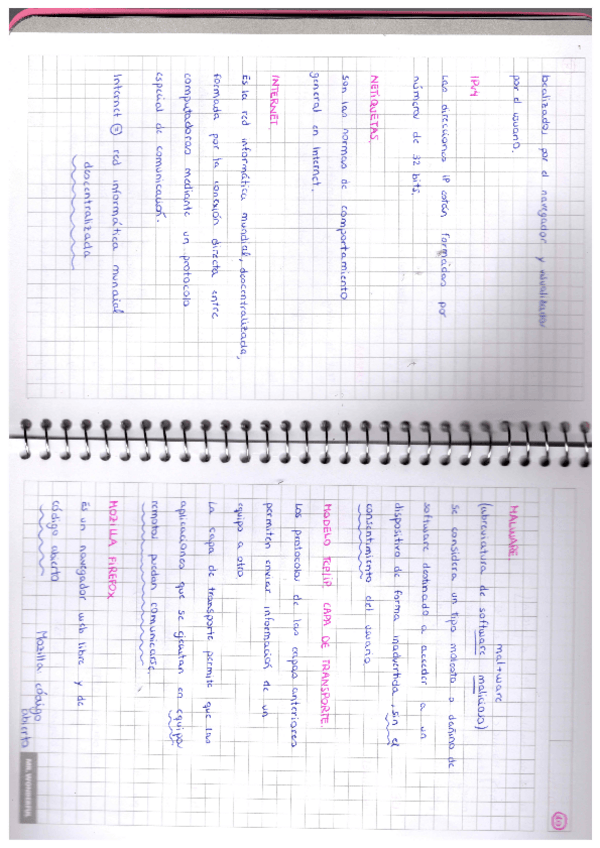 localizados por el navegador y visualizados
por el usuario.
IPv4
Las direcciones IP están formadas por
números de 32 bits.
NETIQUETAS
son las normas de comportamiento
general en Internet.
INTERNET
Es la red informática mundial, descentralizada,
formada por la conexión directa entre
computadoras mediante un protocolo
especial de comunicación.
Internet = red informática mundial
descentralizada
MALWARE mal+ware
(abreviatura de software malicioso)
se considera un tipo molesto o dañino de
software destinado a acceder a un
dispositivo de forma inadvertida, sin el
consentimiento del usuario.
MODELO TCP/IP. CAPA DE TRANSPORTE.
Los protocolos de las capas anteriores
permiten enviar información de un
equipo a otro.
La capa de transporte permite que las
aplicaciones que se ejecutan en equipos
remotos puedan comunicarse.
MOZILLA FIREFOX
Es un navegador web libre y de
código abierto
Mozilla código
abierto
MR. WONDERFUL